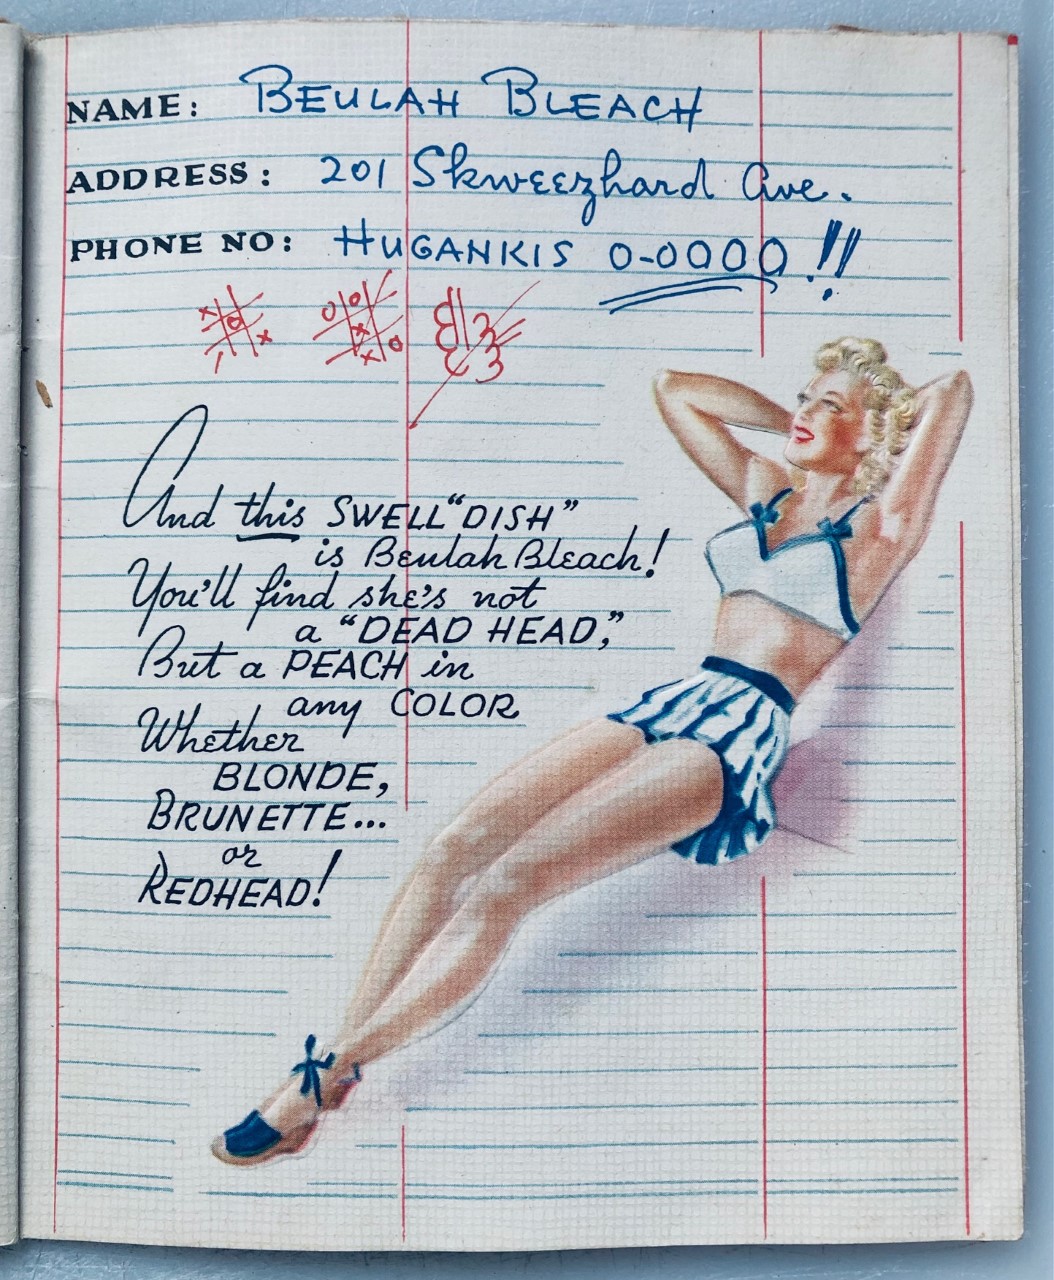 NAME: BEULAH BLEACH
ADDRESS: 201 Skweezhard Ave.
PHONE NO: HUGANKIS 0-0000!!
And this SWELL "DISH"
is Beulah Bleach!
You'll find she's not
a "DEAD HEAD,"
But a PEACH in
any COLOR
Whether
BLONDE,
BRUNETTE...
or
REDHEAD!